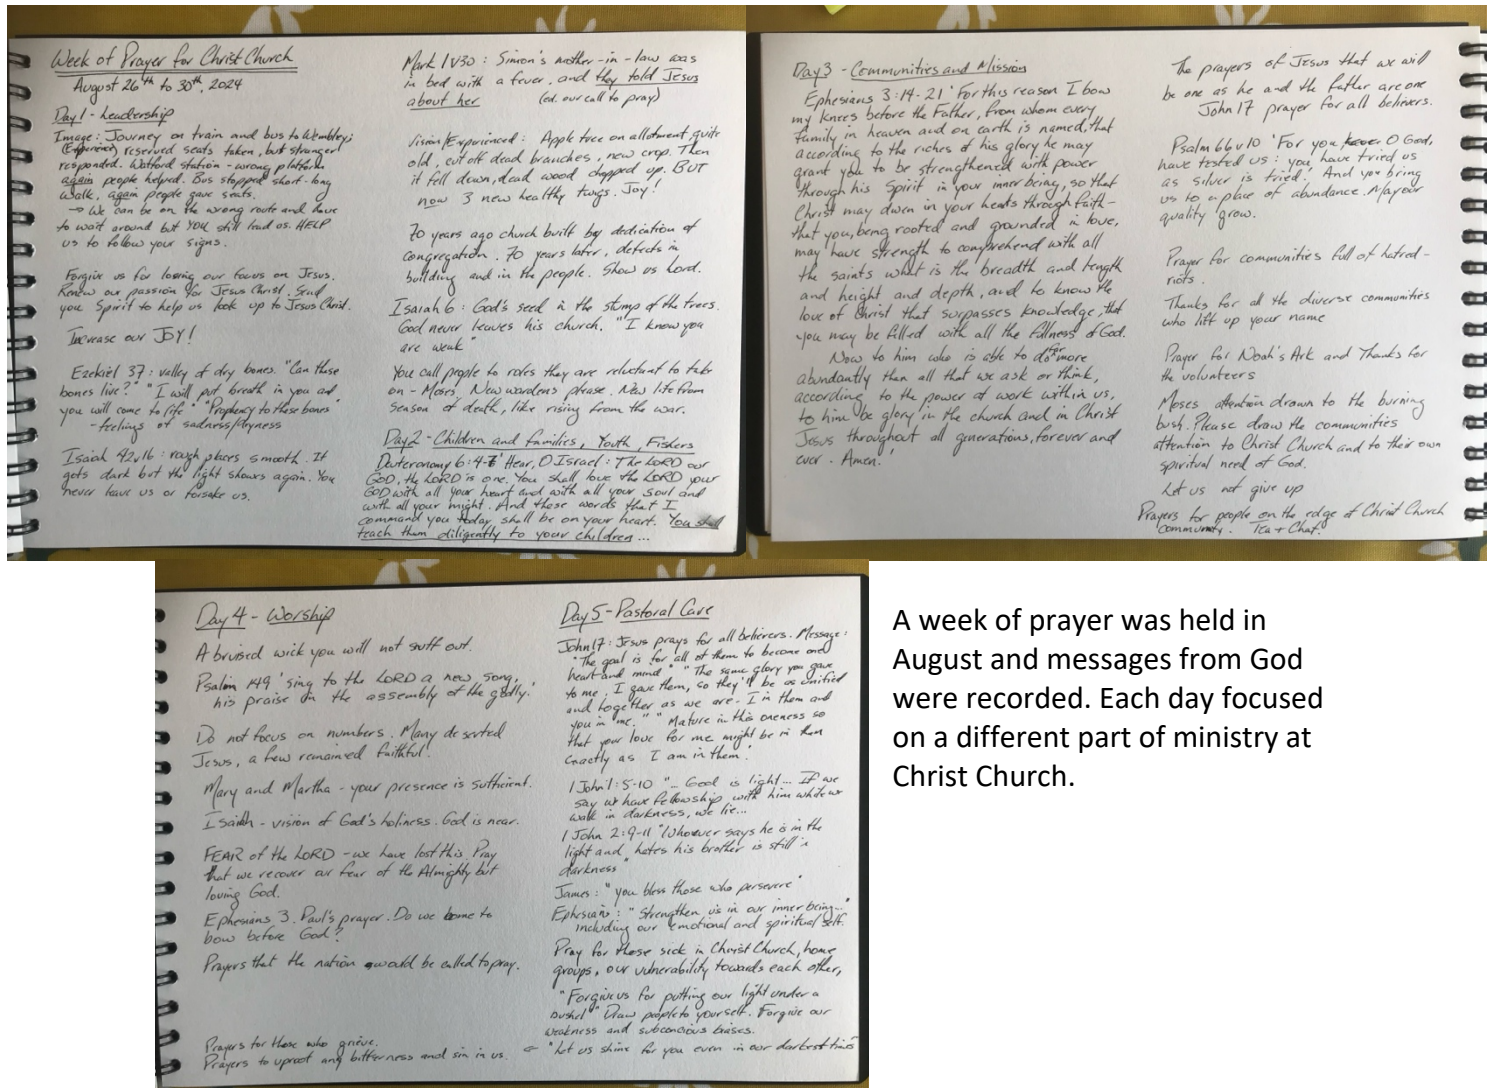 Week of Prayer for Christ Church
August 26th to 30th, 2024
Day 1 - Leadership
Image: Journey on train and bus to Wembley;
(Experience) reserved seats taken, but stranger
responded. Watford station - wrong platform
again people helped. Bus stopped short - long
walk, again people gave seats.
→ We can be on the wrong route and have
to wait around but YOU still lead us. HELP
us to follow your signs.
Forgive us for losing our focus on Jesus.
Renew our passion for Jesus Christ. Send
you Spirit to help us look up to Jesus Christ.
Increase our JOY!
Ezekiel 37: valley of dry bones. "Can these
bones live?" "I will put breath in you and
you will come to life" "Prophecy to these bones"
- feelings of sadness/dryness
Isaiah 42v16: rough places smooth. It
gets dark but the light shows again. You
never leave us or forsake us.
Mark 1v30: Simon's mother-in-law was
in bed with a fever, and they told Jesus
about her (ed. our call to pray)
Vision/Experienced: Apple tree on allotment, quite
old, cut off dead branches, new crop. Then
it fell down, dead wood chopped up. BUT
now 3 new healthy twigs. Joy!
70 years ago church built by dedication of
congregation. 70 years later, defects in
building and in the people. Show us Lord.
Isaiah 6: God's seed in the stump of the trees.
God never leaves his church. "I know you
are weak"
You call people to roles they are reluctant to take
on - Moses. New wardens please. New life from
season of death, like rising from the war.
Day 2 - Children and families, Youth, Fishers
Deuteronomy 6:4-7 'Hear, O Israel: The LORD our
GOD, the LORD is one. You shall love the LORD your
GOD with all your heart and with all your soul and
with all your might. And these words that I
command you today shall be on your heart. You shall
teach them diligently to your children ...
Day 3 - Communities and Mission
Ephesians 3:14-21 'For this reason I bow
my knees before the Father, from whom every
family in heaven and on earth is named, that
according to the riches of his glory he may
grant you to be strengthened with power
through his Spirit in your inner being, so that
Christ may dwell in your hearts through faith -
that you, being rooted and grounded in love,
may have strength to comprehend with all
the saints what is the breadth and length
and height and depth, and to know the
love of Christ that surpasses knowledge, that
you may be filled with all the fullness of God.
Now to him who is able to do far more
abundantly than all that we ask or think,
according to the power of work within us,
to him be glory in the church and in Christ
Jesus throughout all generations, forever and
ever. Amen.'
The prayers of Jesus that we will
be one as he and the father are one
John 17 prayer for all believers.
Psalm 66v10 'For you, O God,
have tested us: you have tried us
as silver is tried.' And you bring
us to a place of abundance. May our
quality grow.
Prayer for communities full of hatred -
riots.
Thanks for all the diverse communities
who lift up your name
Prayer for Noah's Ark and Thanks for
the volunteers
Moses attention drawn to the burning
bush. Please draw the communities
attention to Christ Church and to their own
spiritual need of God.
Let us not give up
Prayers for people on the edge of Christ Church
community. Tea + Chat.
Day 4 - Worship
A bruised wick you will not snuff out.
Psalm 149 'Sing to the LORD a new song,
his praise in the assembly of the godly.'
Do not focus on numbers. Many deserted
Jesus, a few remained faithful.
Mary and Martha - your presence is sufficient.
Isaiah - vision of God's holiness. God is near.
FEAR of the LORD - we have lost this. Pray
that we recover our fear of the Almighty but
loving God.
Ephesians 3. Paul's prayer. Do we come to
bow before God?
Prayers that the nation would be called to pray.
Prayers for those who grieve.
Prayers to uproot any bitterness and sin in us.
Day 5 - Pastoral Care
John 17: Jesus prays for all believers. Message:
"The goal is for all of them to become one
heart and mind" "The same glory you gave
to me, I gave them, so they'll be as unified
and together as we are - I in them and
you in me." "Mature in this oneness so
that your love for me might be in them
exactly as I am in them.'
1 John 1:5-10 "... God is light ... If we
say we have fellowship with him while we
walk in darkness, we lie...
1 John 2:9-11 "Whoever says he is in the
light and hates his brother is still in
darkness"
James: "you bless those who persevere"
Ephesians: "Strengthen us in our inner being..."
including our emotional and spiritual self.
Pray for those sick in Christ Church, home
groups, our vulnerability towards each other,
"Forgive us for putting our light under a
bushel" Draw people to yourself. Forgive our
weakness and subconcious biases.
← "Let us shine for you even in our darkest times"
A week of prayer was held in
August and messages from God
were recorded. Each day focused
on a different part of ministry at
Christ Church.